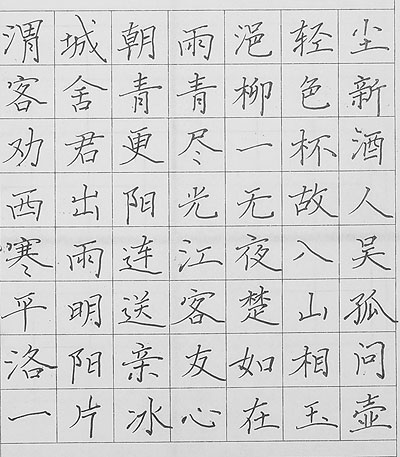 渭城朝雨浥轻尘
客舍青青柳色新
劝君更尽一杯酒
西出阳光无故人
寒雨连江夜八吴
平明送客楚山孤
洛阳亲友如相问
一片冰心在玉壶